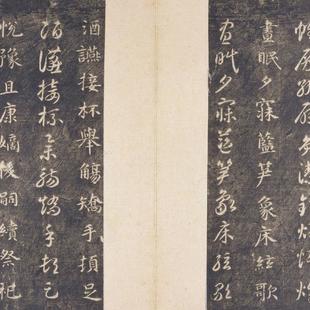 帷房紈扇員潔銀燭煒煌
晝眠夕寐藍笋象床絃歌
晝眠夕寐藍笋象床絃歌
酒讌接杯舉觴矯手頓足
酒讌接杯舉觴矯手頓足
悅豫且康嫡後嗣續祭祀